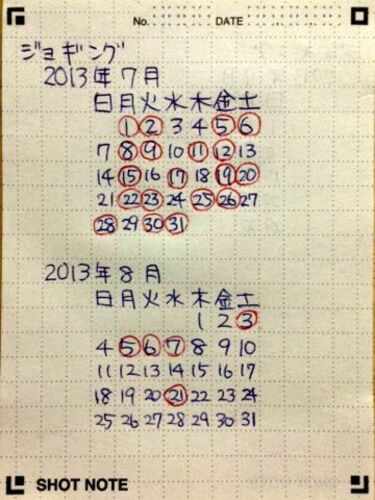 No. DATE
ジョギング
2013年7月
日月火水木金土
1 2 3 4 5 6
7 8 9 10 11 12 13
14 15 16 17 18 19 20
21 22 23 24 25 26 27
28 29 30 31
2013年8月
日月火水木金土
1 2 3
4 5 6 7 8 9 10
11 12 13 14 15 16 17
18 19 20 21 22 23 24
25 26 27 28 29 30 31
SHOT NOTE